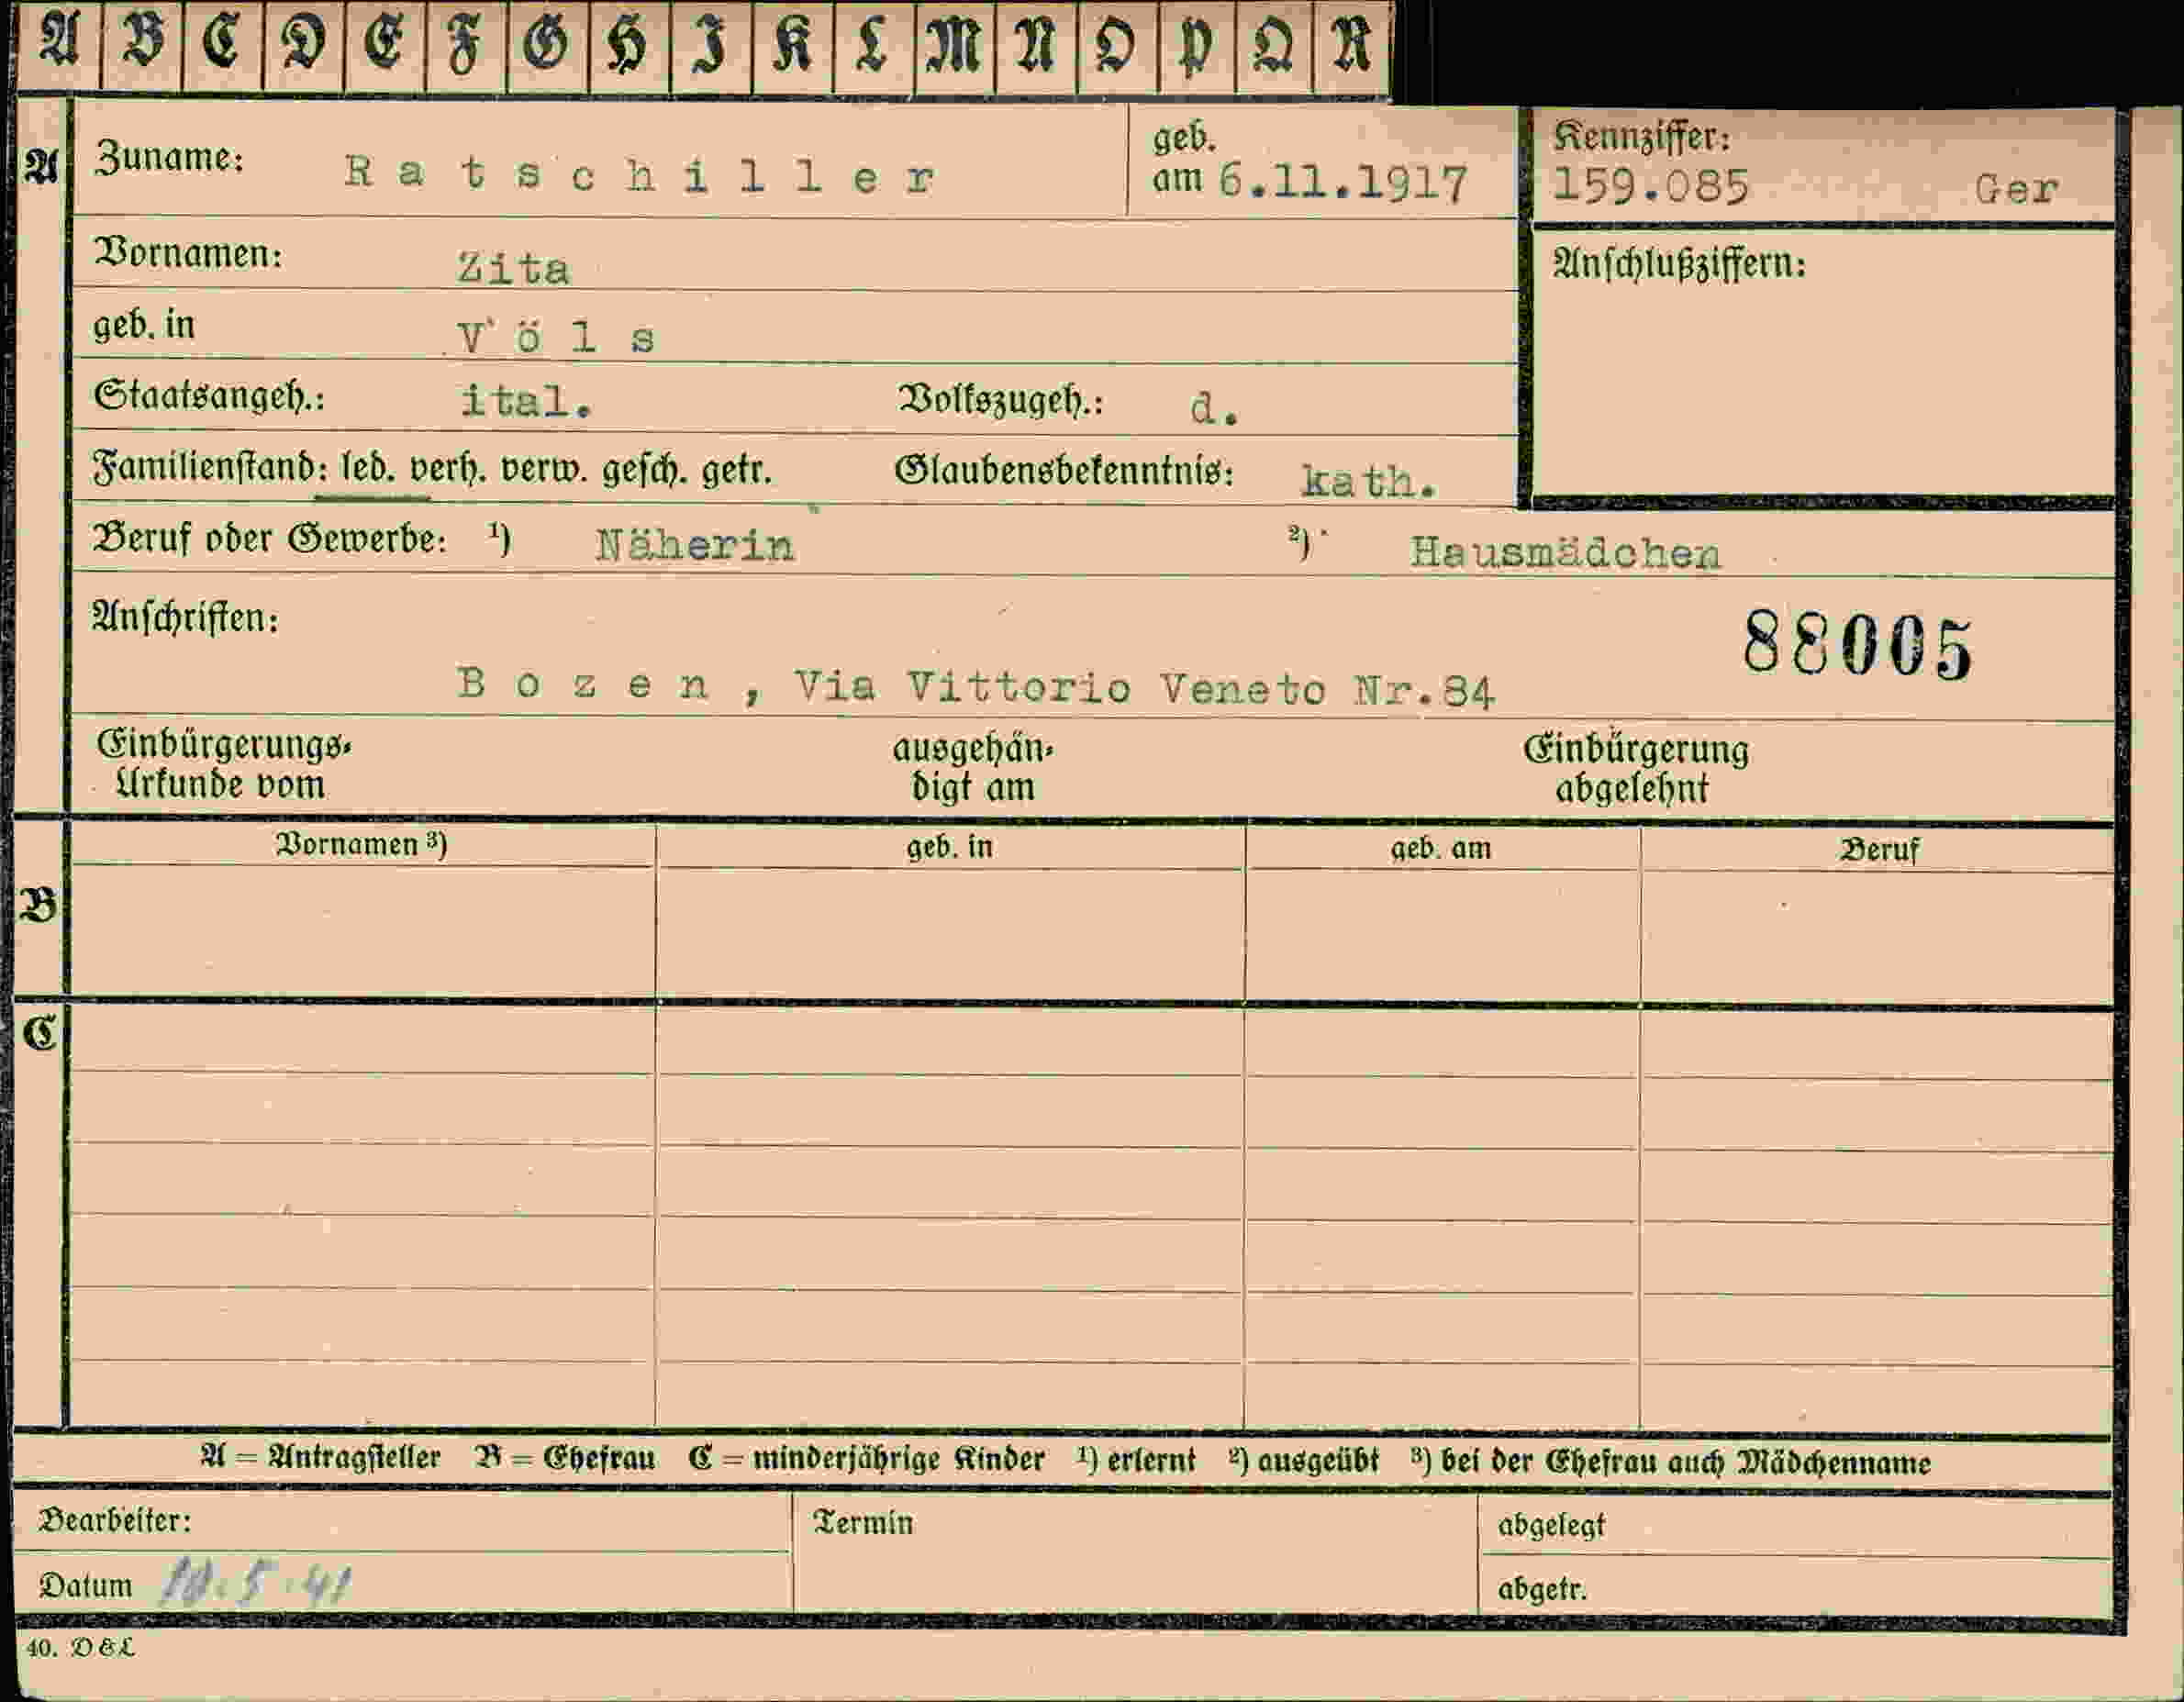 A B C D E F G H I K L M N O P Q R
A Zuname: Ratschiller geb. am 6.11.1917 Kennziffer: 159.085 Ger
Vornamen: Zita Anschlußziffern:
geb. in Völs
Staatsangeh.: ital. Volkszugeh.: d.
Familienstand: led. verh. verw. gesch. getr. Glaubensbekenntnis: kath.
Beruf oder Gewerbe: 1) Näherin 2) Hausmädchen
Anschriften:
88005
Bozen, Via Vittorio Veneto Nr.84
Einbürgerungs- ausgehän- Einbürgerung
Urkunde vom digt am abgelehnt
Vornamen 3) geb. in geb. am Beruf
B
C
A = Antragsteller B = Ehefrau C = minderjährige Kinder 1) erlernt 2) ausgeübt 3) bei der Ehefrau auch Mädchenname
Bearbeiter: Termin abgelegt
Datum 5.41 abgetr.
40. D & L